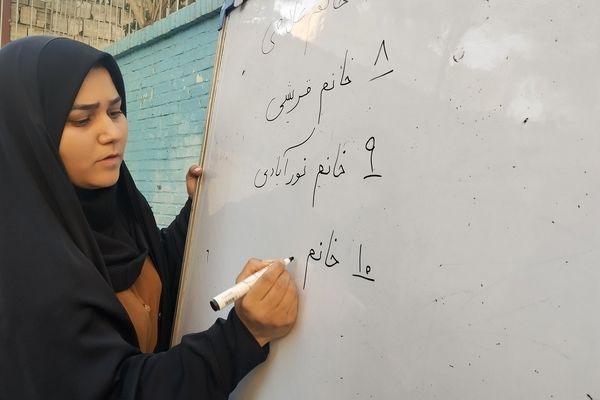 خانم
۸ خانم قریشی
۹ خانم نورآبادی
۱۰ خانم